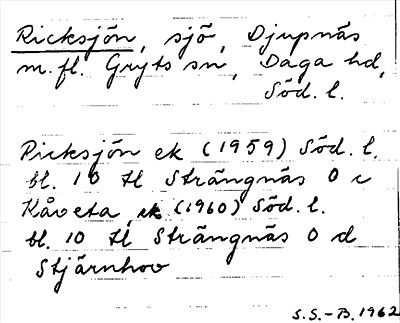 Ricksjön, sjö, Djupnäs
m.fl. Gryts sn, Daga hd,
Söd. l.
Ricksjön ek (1959) Söd. l.
bl. 10 tl Strängnäs O c
Kåveta ek (1960) Söd. l.
bl. 10 tl Strängnäs O d
Stjärnhov
S.S.-B. 1962